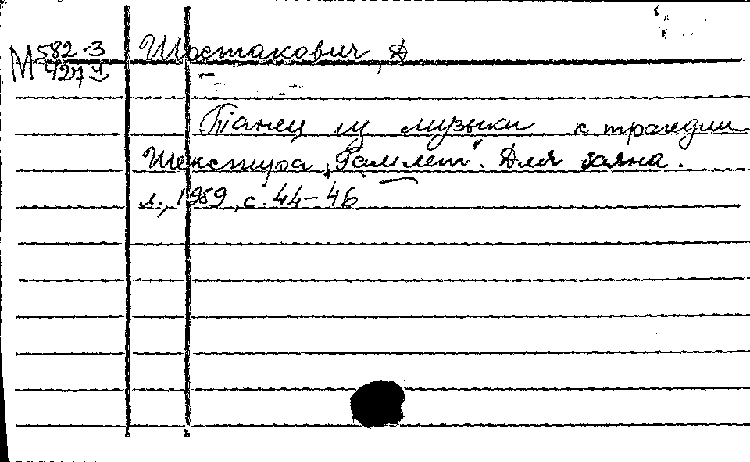 М 582-3 Шостакович, Д
427
Танец из музыки к трагедии
Шекспира "Гамлет". Для баяна.
Л., 1989, с. 44-46